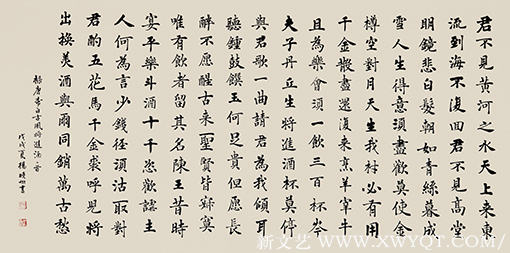 君不見黃河之水天上來東
流到海不復回君不見高堂
明鏡悲白髮朝如青絲暮成
雪人生得意須盡歡莫使金
樽空對月天生我材必有用
千金散盡還復來烹羊宰牛
且為樂會須一飲三百杯岑
夫子丹丘生將進酒杯莫停
與君歌一曲請君為我傾耳
聽鍾鼓饌玉何足貴但愿長
醉不愿醒古來聖賢皆寂寞
唯有飲者留其名陳王昔時
宴平樂斗酒十千恣歡謔主
人何為言少錢徑須沽取對
君酌五花馬千金裘呼兒將
出換美酒與爾同銷萬古愁
唐李白古風將進酒一首
戊戌夏楊書
新文艺／WWW.XWYQT.COM/